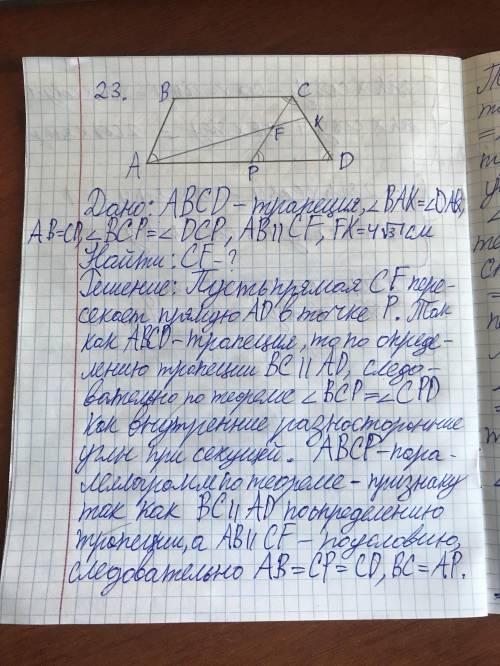 23.
B C
F K
A P D
Дано: ABCD - трапеция, ∠BAK=∠DAK,
AB=CD, ∠BCP=∠DCP, AB||CF, FK=4√3 см
Найти: CF-?
Решение: Пусть прямая CF пере-
секает прямую AD в точке P. Так
как ABCD-трапеция, то по опреде-
лению трапеции BC||AD, следо-
вательно по теореме ∠BCP=∠CPD
как внутренние разносторонние
углы при секущей. ABCP-пара-
ллелограмм по теореме-признаку
так как BC||AD по определению
трапеции, а AB||CF - по условию,
следовательно AB=CP=CD, BC=AP.